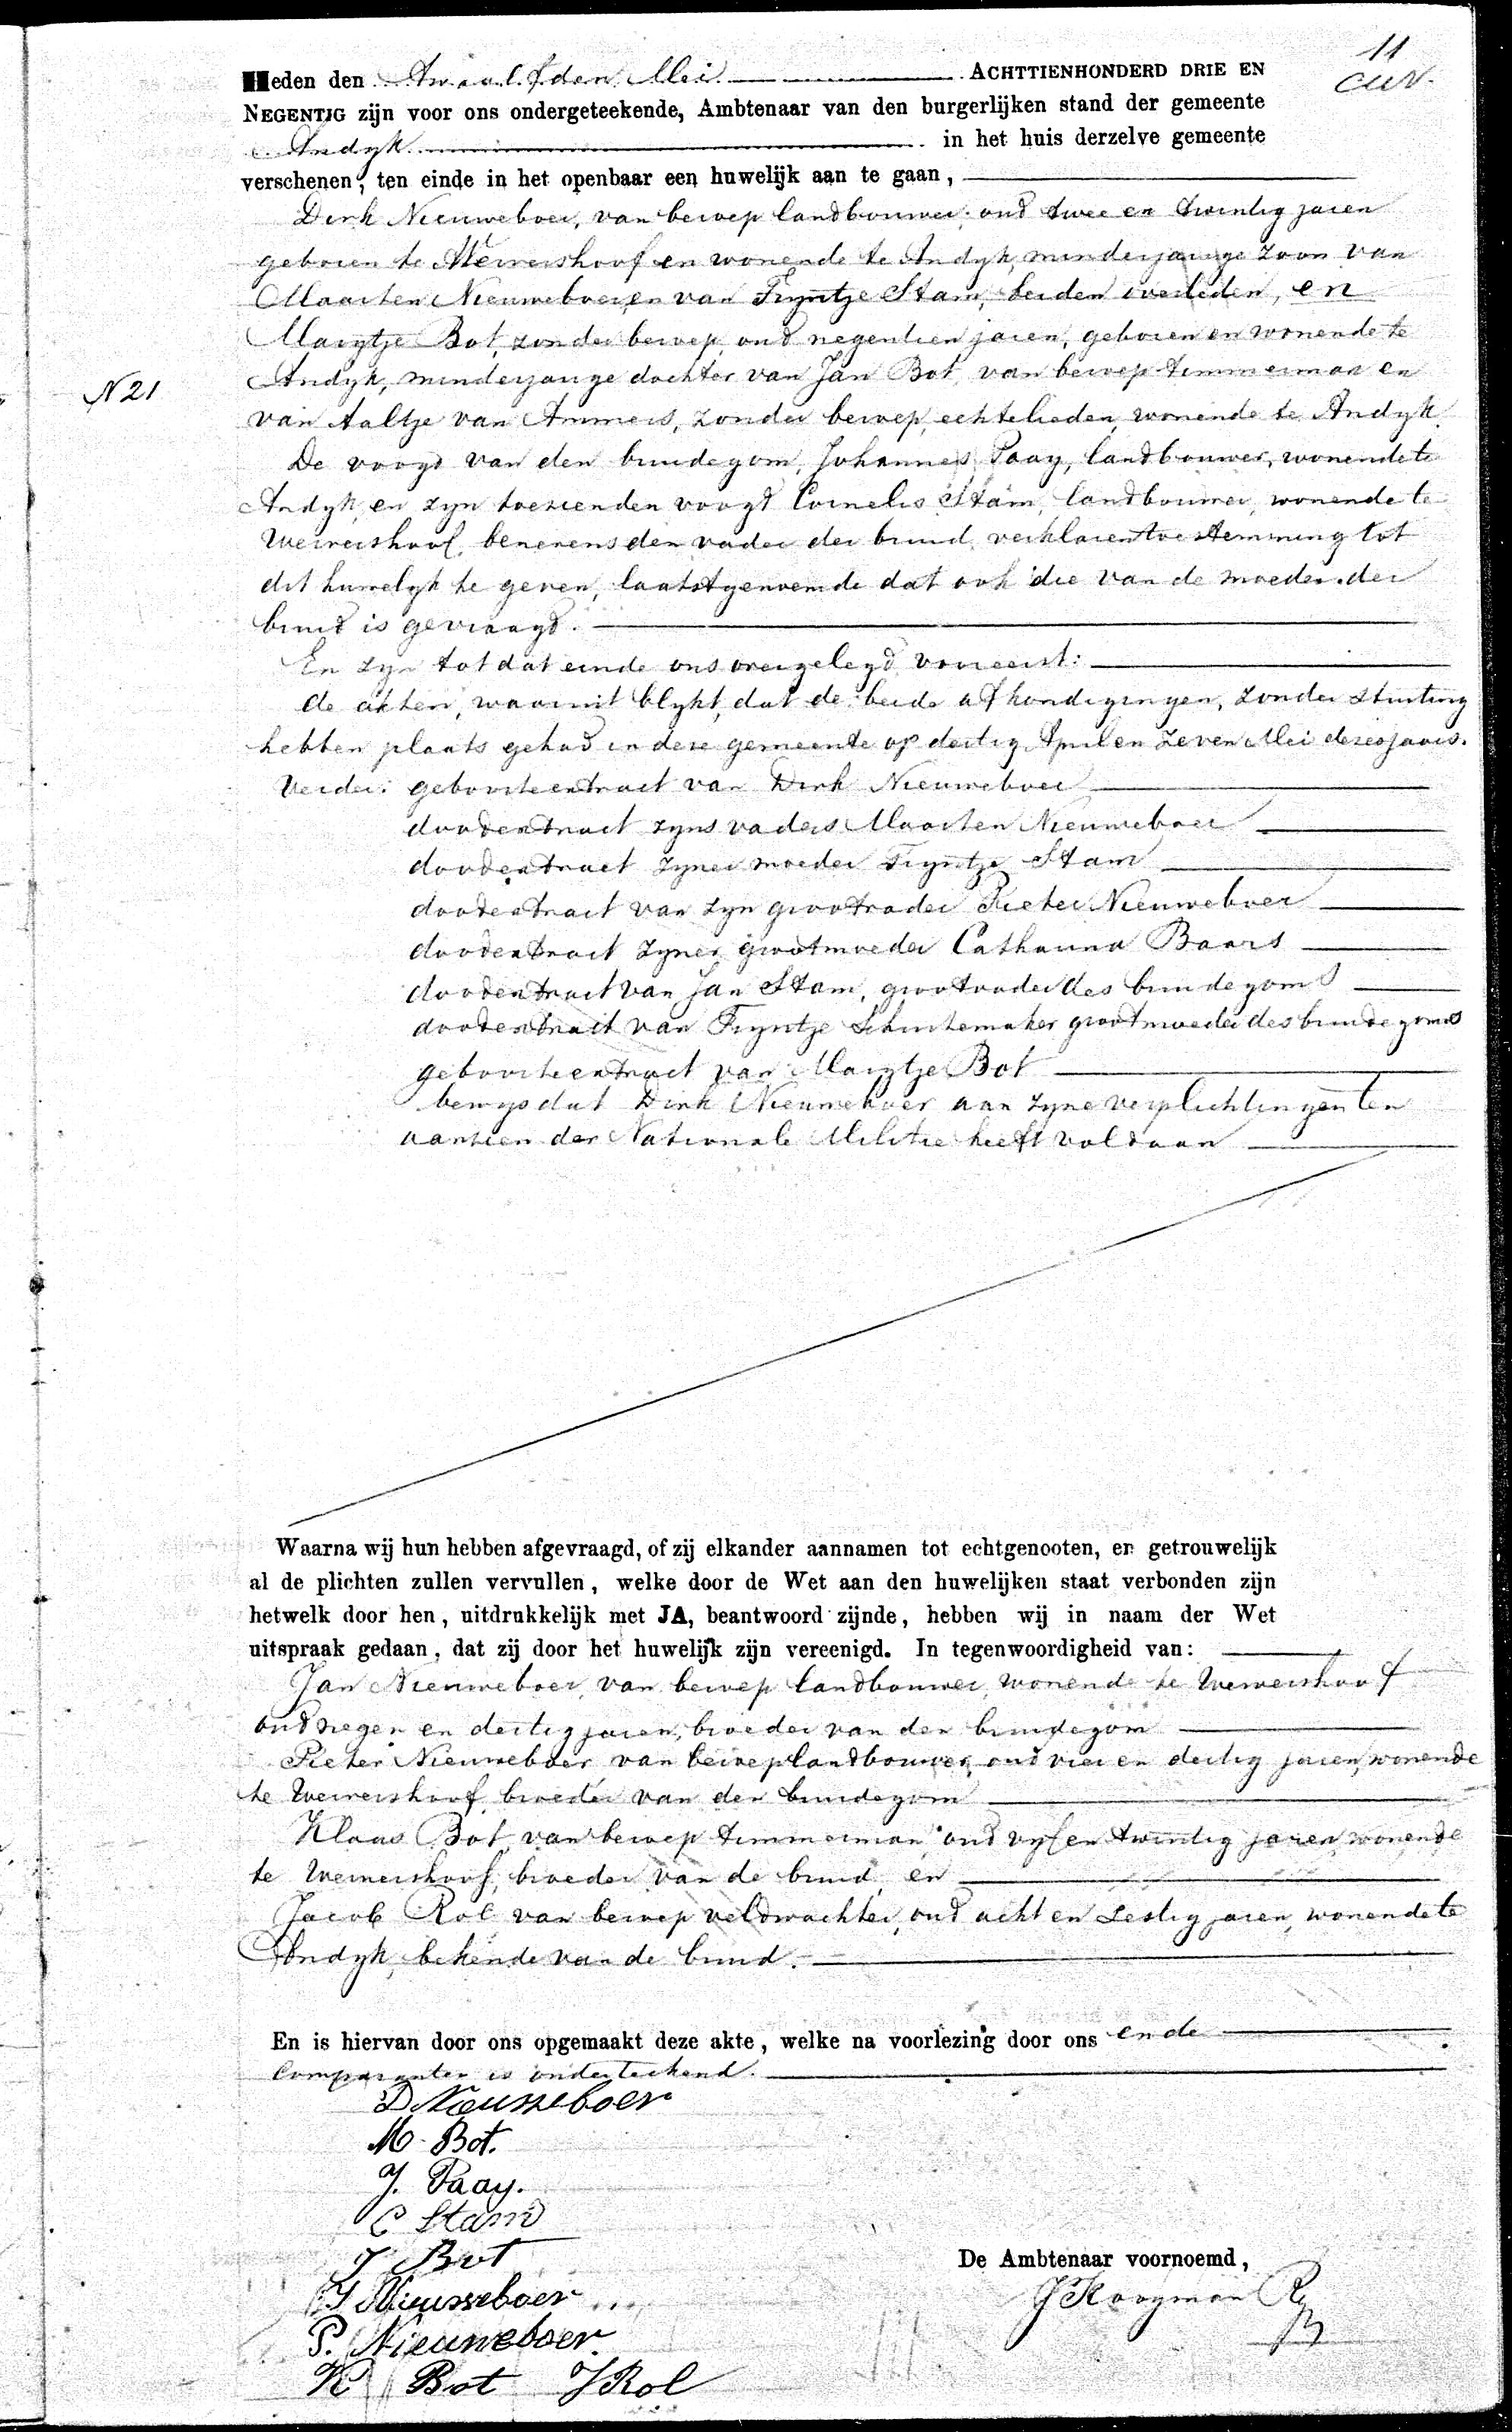 11
Heden den Twaalfden Mei ACHTTIENHONDERD DRIE EN
NEGENTIG zijn voor ons ondergeteekende, Ambtenaar van den burgerlijken stand der gemeente
Andyk in het huis derzelve gemeente
verschenen, ten einde in het openbaar een huwelijk aan te gaan,
Dirk Nieuweboer, van beroep landbouwer, oud twee en twintig jaren
geboren te Wervershoof en wonende te Andyk, minderjarige zoon van
Maarten Nieuweboer, en van Tryntje Stam, beiden overleden, en
Marytje Bot, zonder beroep, oud negentien jaren, geboren en wonende te
N 21
Andyk, minderjarige dochter van Jan Bot, van beroep timmerman en
van Aaltje van Ammers, zonder beroep, echtelieden, wonende te Andyk.
De voogd van den bruidegom, Johannes Paay, landbouwer, wonende te
Andyk, en zyn toezienden voogd Cornelis Stam, landbouwer, wonende te
Wervershoof, benevens den vader der bruid, verklaren toestemming tot
dit huwelyk te geven, laatstgenoemde dat ook die van de moeder der
bruid is gevraagd.
En zyn tot dat einde ons overgelegd vooreerst:
de akten, waaruit blykt, dat de beide afkondigingen, zonder stuiting
hebben plaats gehad in deze gemeente op dertig April en zeven Mei dezes jaars.
Verder: geboorteextract van Dirk Nieuweboer
doodextract zyns vaders Maarten Nieuweboer
doodextract zyner moeder Tryntje Stam
doodextract van zyn grootvader Pieter Nieuweboer
doodextract zyner grootmoeder Catharina Baars
doodextract van Jan Stam, grootvader des bruidegoms
doodextract van Tryntje Schoutemaker grootmoeder des bruidegoms
geboorteextract van Marytje Bot
bewys dat Dirk Nieuweboer aan zyne verplichtingen ten
aanzien der Nationale Militie heeft voldaan
Waarna wij hun hebben afgevraagd, of zij elkander aannamen tot echtgenooten, en getrouwelijk
al de plichten zullen vervullen, welke door de Wet aan den huwelijken staat verbonden zijn
hetwelk door hen, uitdrukkelijk met JA, beantwoord zijnde, hebben wij in naam der Wet
uitspraak gedaan, dat zij door het huwelijk zijn vereenigd. In tegenwoordigheid van:
Jan Nieuweboer, van beroep landbouwer, wonende te Wervershoof
oud negen en dertig jaren, broeder van den bruidegom
Pieter Nieuweboer van beroep landbouwer, oud vier en dertig jaren, wonende
te Wervershoof, broeder van den bruidegom
Klaas Bot, van beroep timmerman, oud vyf en twintig jaren, wonende
te Wervershoof, broeder van de bruid, en
Jacob Rol van beroep veldwachter, oud acht en zestig jaren, wonende te
Andyk, bekende van de bruid.
En is hiervan door ons opgemaakt deze akte, welke na voorlezing door ons en de
Comparanten is onderteekend.
D Nieuweboer
M. Bot.
J. Paay.
C Stam
J Bot
De Ambtenaar voornoemd,
J Nieuweboer
J Kooyman
P. Nieuweboer
K Bot J Rol